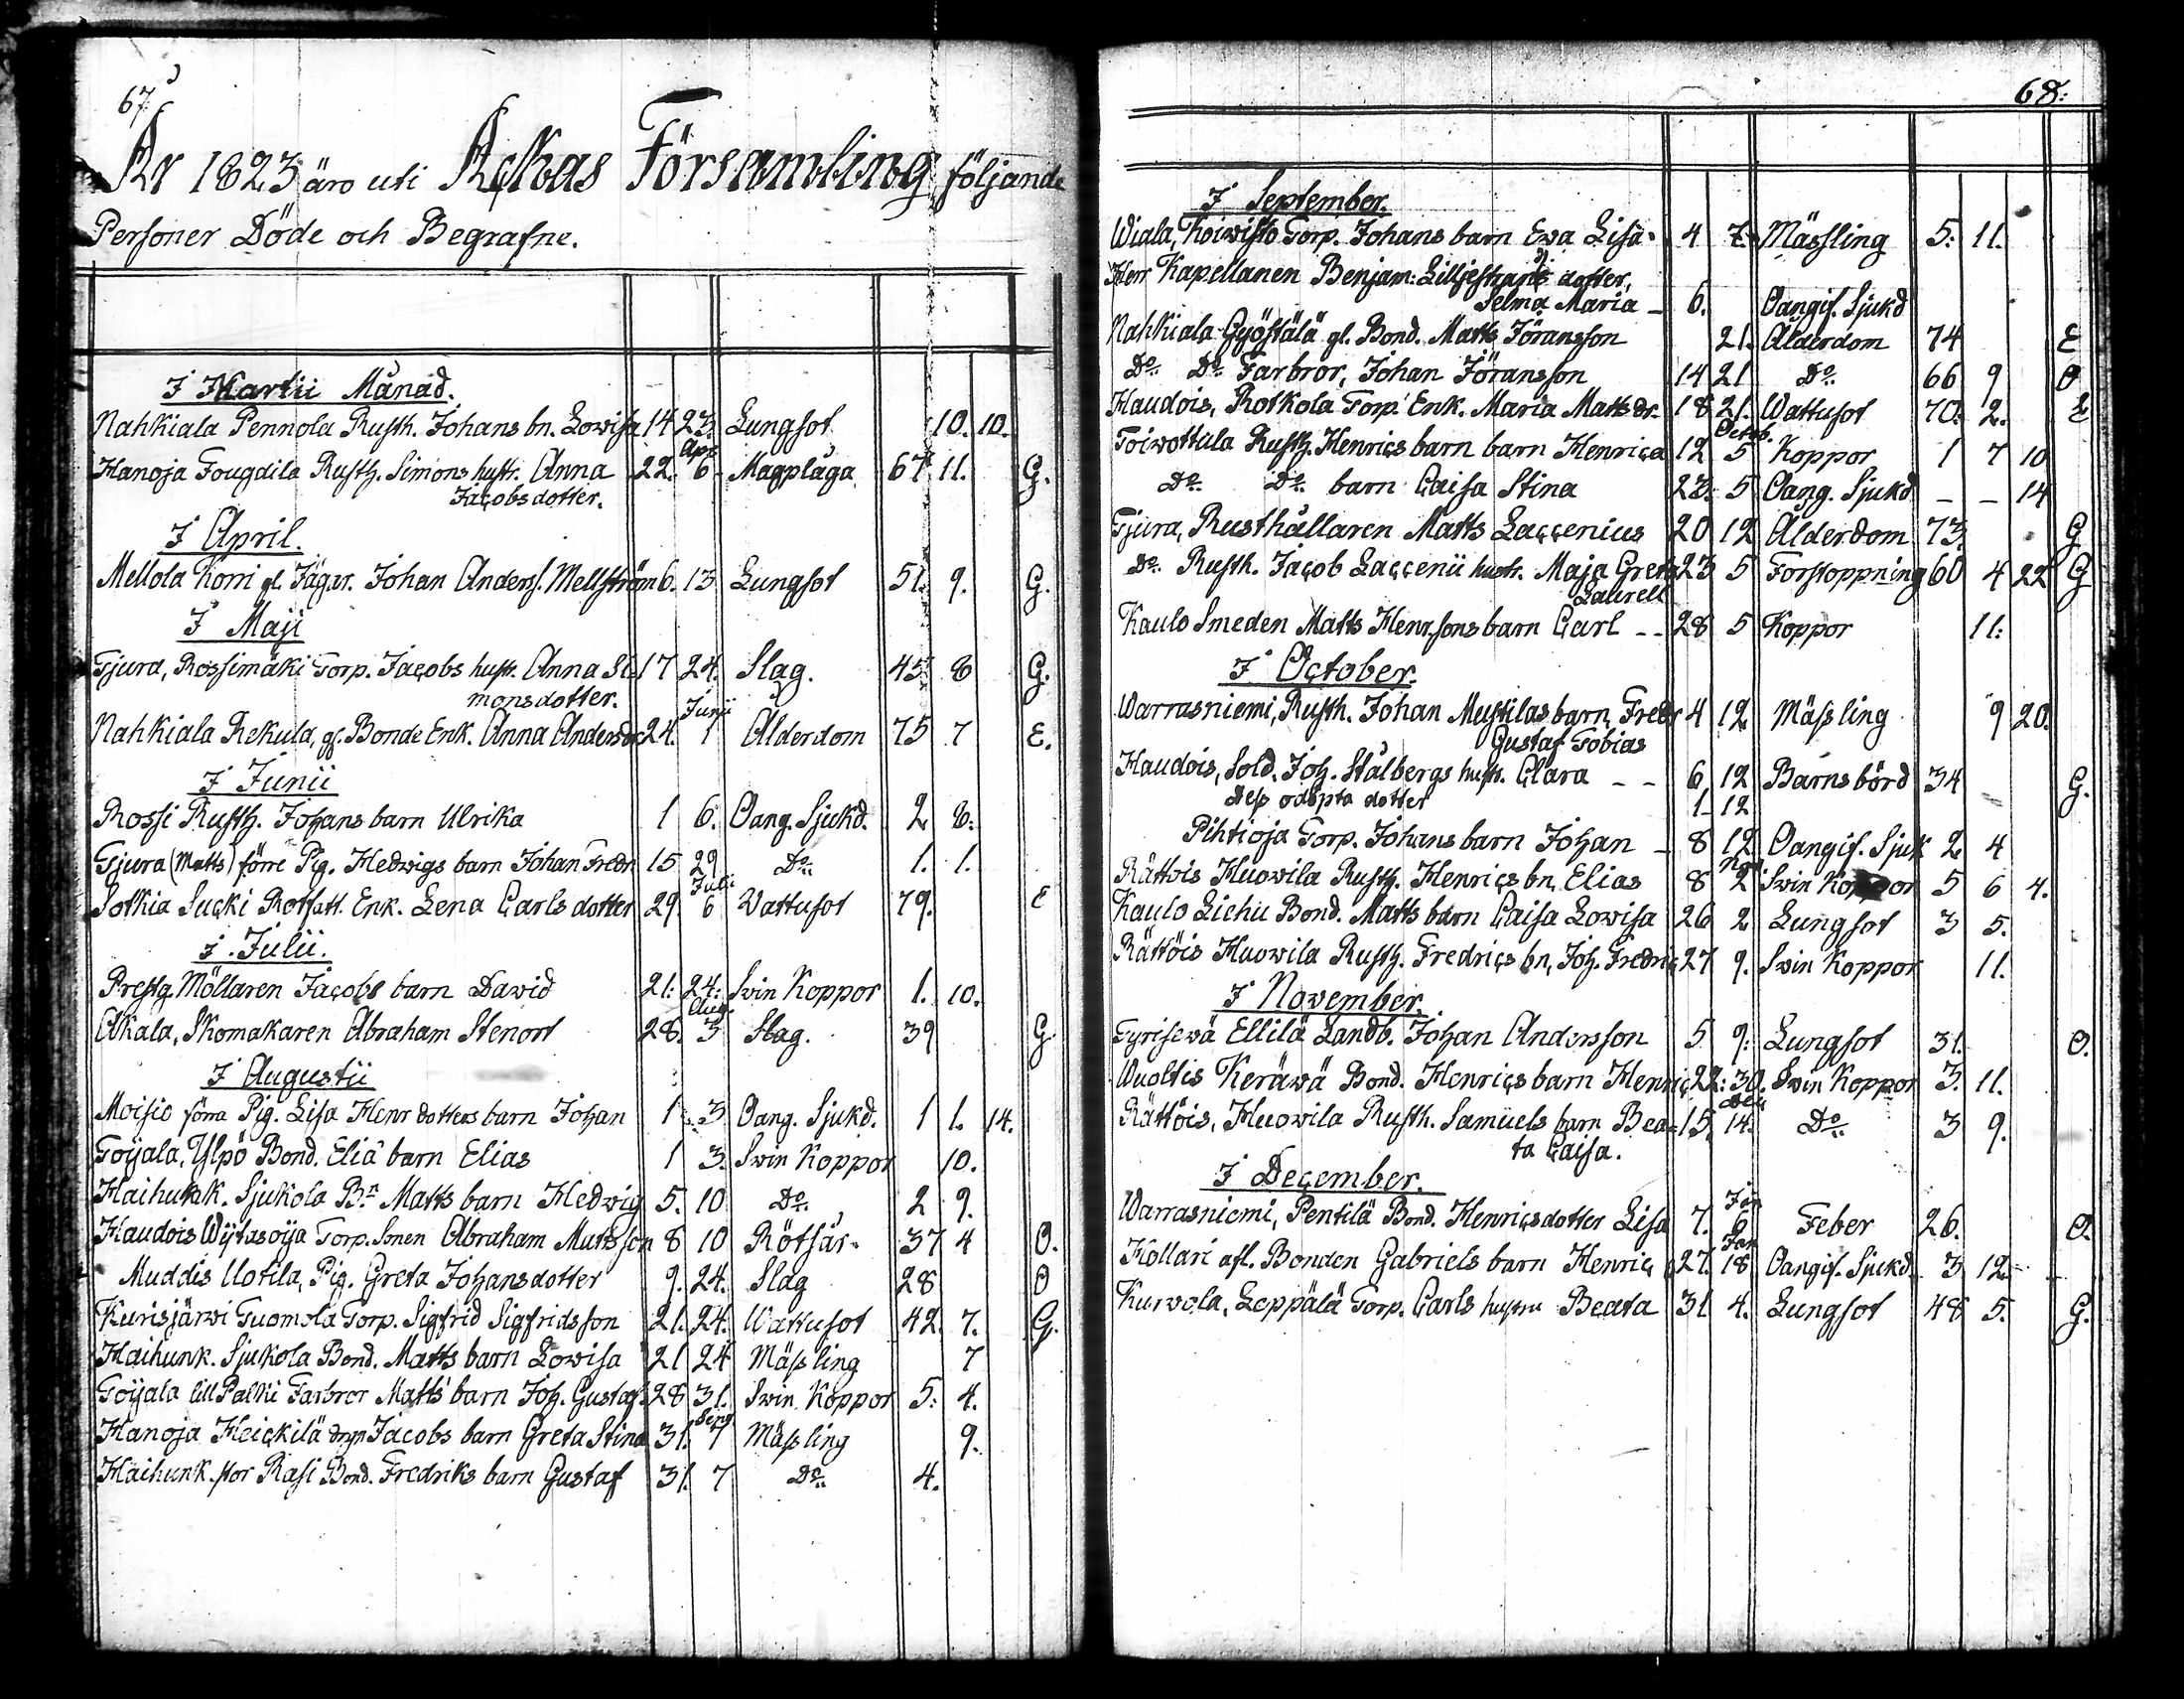 67.
År 1823 äro uti Ackas Försambling följande
Personer Döde och Begrafne.
I Martii Månad.
Nahkiala Pennola Rusth. Johans bn. Lowisa 14 23. Lungsot 10. 10.
Apr.
Hanoja Fougdila Rusth. Simons hustr. Anna 22. 6 Magplåga 67 11. G.
Jacobsdotter.
I April.
Mellola Korri gl. Jägar. Johan Anders. Mellström 6. 13 Lungsot 51. 9. G.
I Maji
Tjura, Rossimäki Torp. Jacobs hustr. Anna Si= 17 24. Slag. 45 8 G.
monsdotter.
Junii
Nahkiala Rekula, gl. Bonde Enk. Anna Andersdr. 24. 1 Ålderdom 75 7 E.
I Junii
Rossi Rusth. Johans barn Ulrika 1 6. Oang. Sjukd. 2 8.
Tjura (Matts) förre Pig. Hedwigs barn Johan Fredr. 15 29 Do 1. 1.
Julii
Sotkia Sucki Rotsatt. Enk. Lena Carlsdotter 29. 6 Wattusot 79. E
I Julii.
Prestg. Möllaren Jacobs barn Dawid 21. 24. Swin Koppor 1. 10.
Aug.
Akala, Skomakaren Abraham Stenort 28. 3 Slag. 39 G
I Augustii
Moisio förra Pig. Lisa Henrdotters barn Johan 1 3 Oang. Sjukd. 1 1. 14.
Toijala, Ylpö Bond. Eliä barn Elias 1 3. Swin Koppor 10.
Haihunk. Sjukola Bn. Matts barn Hedwig 5. 10 Do. 2 9.
Haudois Wijtasoija Torp. Sonen Abraham Mattsson 8 10 Rötsår. 37 4 O.
Muddis Uotila, Pig. Greta Johansdotter 9. 24. Slag 28 O
Kurisjärwi Tuomola Torp. Sigfrid Sigfridsson 21. 24. Wattusot 42. 7. G.
Haihunk. Sjukola Bond. Matts barn Lowisa 21 24 Mässling 7
Toijala lill Palki Farbror Matts barn Joh. Gustaf. 28 31. Swin Koppor 5. 4.
Sept.
Hanoja Heickilä drgn Jacobs barn Greta Stina 31. 7 Mässling 9.
Haihunk. stor Rasi Bond. Fredriks barn Gustaf 31. 7 Do. 4.
68.
I September.
Wiala, Koiwisto Torp. Johans barn Ewa Lisa 4 7. Mässling 5. 11.
Herr Kapellanen Benjam: Lilljestrands dotter,
Selma Maria 6. Oangif. Sjukd
Nahkiala Gyöstälä gl. Bond. Matts Jöransson 21. Ålderdom 74 E
Do. Do. Farbror, Johan Jöransson 14 21 Do. 66 9 O
Haudois, Rotkola Torp. Enk. Maria Mattsdr. 18 21. Wattusot 70. 2. E
Octob.
Toiwottula Rusth. Henrics barn barn Henrica 12 5 Koppor 1 7 10
Do. Do. barn Caisa Stina 23. 5 Oang. Sjukd – – 14
Tjura, Rusthållaren Matts Laccenius 20 12 Ålderdom 73. G
Do. Rusth. Jacob Laccenii hustr. Maja Greta 23 5 Förstoppning 60 4 22 G
Laurell
Kaulo Smeden Matts Henrsons barn Carl 28 5 Koppor 11.
I October.
Warrasniemi, Rusth. Johan Mustilas barn, Fredr 4 12 Mässling 9 20.
Gustaf Tobias
Haudois, Sold. Joh. Stålbergs hustr. Clara 6 12 Barnsbörd 34 G.
Dess odöpta dotter 1 12
Pihtioja Torp. Johans barn Johan 8 12 Oangif. Sjuk 2 4
Nov.
Rättois Huowila Rusth. Henrics bn. Elias 8 2 Swin Koppor 5 6 4.
Kaulo Liehu Bond. Matts barn Caisa Lowisa 26 2 Lungsot 3 5.
Rättöis Huowila Rusth. Fredrics bn, Joh. Fredric 27 9. Swin Koppor 11.
I November.
Tyrisewä Ellilä Landb. Johan Andersson 5 9. Lungsot 31. O.
Wuoltis Keräwä Bond. Henrics barn Henric 22. 30. Swin Koppor 3. 11.
Dec
Rättöis, Huowila Rusth. Samuels barn Bea= 15. 14. Do. 3 9.
ta Caisa.
I December.
Jan
Warrasniemi, Pentilä Bond. Henricsdotter Lisa 7. 6 Feber 26. O.
Jan
Kollari afl. Bonden Gabriels barn Henric 27. 18 Oangif. Sjukd. 3 12.
Kurwola, Leppälä Torp. Carls hustru Beata 31 4. Lungsot 48 5. G.